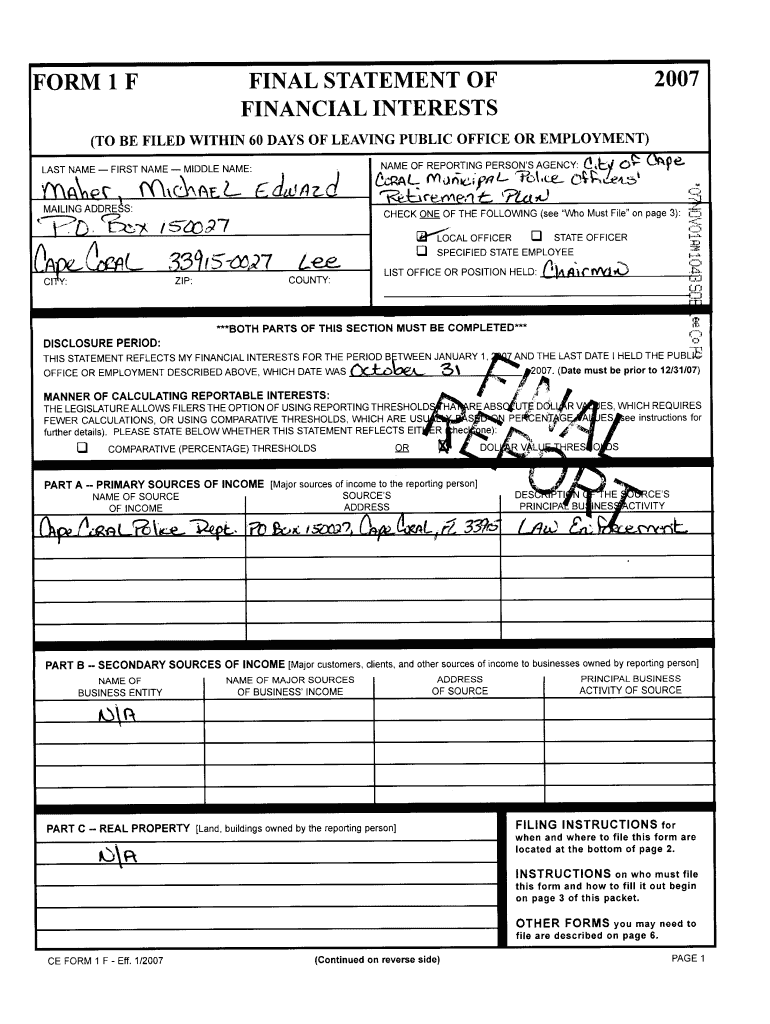 FORM 1 F
FINAL STATEMENT OF
FINANCIAL INTERESTS
2007
(TO BE FILED WITHIN 60 DAYS OF LEAVING PUBLIC OFFICE OR EMPLOYMENT)
LAST NAME — FIRST NAME — MIDDLE NAME:
Maher, Michael Edward
MAILING ADDRESS:
P.O. Box 150027
Cape Coral 33915-0027 Lee
CITY: ZIP: COUNTY:
NAME OF REPORTING PERSON'S AGENCY: City of Cape
Coral Municipal Police Officers'
Retirement Plan
CHECK ONE OF THE FOLLOWING (see "Who Must File" on page 3):
LOCAL OFFICER STATE OFFICER
SPECIFIED STATE EMPLOYEE
LIST OFFICE OR POSITION HELD: Chairman
'07NOV01AM1043SOE Lee Co Fl
***BOTH PARTS OF THIS SECTION MUST BE COMPLETED***
DISCLOSURE PERIOD:
THIS STATEMENT REFLECTS MY FINANCIAL INTERESTS FOR THE PERIOD BETWEEN JANUARY 1, 2007 AND THE LAST DATE I HELD THE PUBLIC
OFFICE OR EMPLOYMENT DESCRIBED ABOVE, WHICH DATE WAS October 31 , 2007. (Date must be prior to 12/31/07)
MANNER OF CALCULATING REPORTABLE INTERESTS:
THE LEGISLATURE ALLOWS FILERS THE OPTION OF USING REPORTING THRESHOLDS THAT ARE ABSOLUTE DOLLAR VALUES, WHICH REQUIRES
FEWER CALCULATIONS, OR USING COMPARATIVE THRESHOLDS, WHICH ARE USUALLY BASED ON PERCENTAGE VALUES (see instructions for
further details). PLEASE STATE BELOW WHETHER THIS STATEMENT REFLECTS EITHER (check one):
COMPARATIVE (PERCENTAGE) THRESHOLDS OR DOLLAR VALUE THRESHOLDS
FINAL
REPORT
PART A -- PRIMARY SOURCES OF INCOME [Major sources of income to the reporting person]
NAME OF SOURCE SOURCE'S DESCRIPTION OF THE SOURCE'S
OF INCOME ADDRESS PRINCIPAL BUSINESS ACTIVITY
Cape Coral Police Dept. PO Box 150027, Cape Coral, FL 33915 Law Enforcement
PART B -- SECONDARY SOURCES OF INCOME [Major customers, clients, and other sources of income to businesses owned by reporting person]
NAME OF NAME OF MAJOR SOURCES ADDRESS PRINCIPAL BUSINESS
BUSINESS ENTITY OF BUSINESS' INCOME OF SOURCE ACTIVITY OF SOURCE
N/A
PART C -- REAL PROPERTY [Land, buildings owned by the reporting person]
N/A
FILING INSTRUCTIONS for
when and where to file this form are
located at the bottom of page 2.
INSTRUCTIONS on who must file
this form and how to fill it out begin
on page 3 of this packet.
OTHER FORMS you may need to
file are described on page 6.
CE FORM 1 F - Eff. 1/2007 (Continued on reverse side) PAGE 1